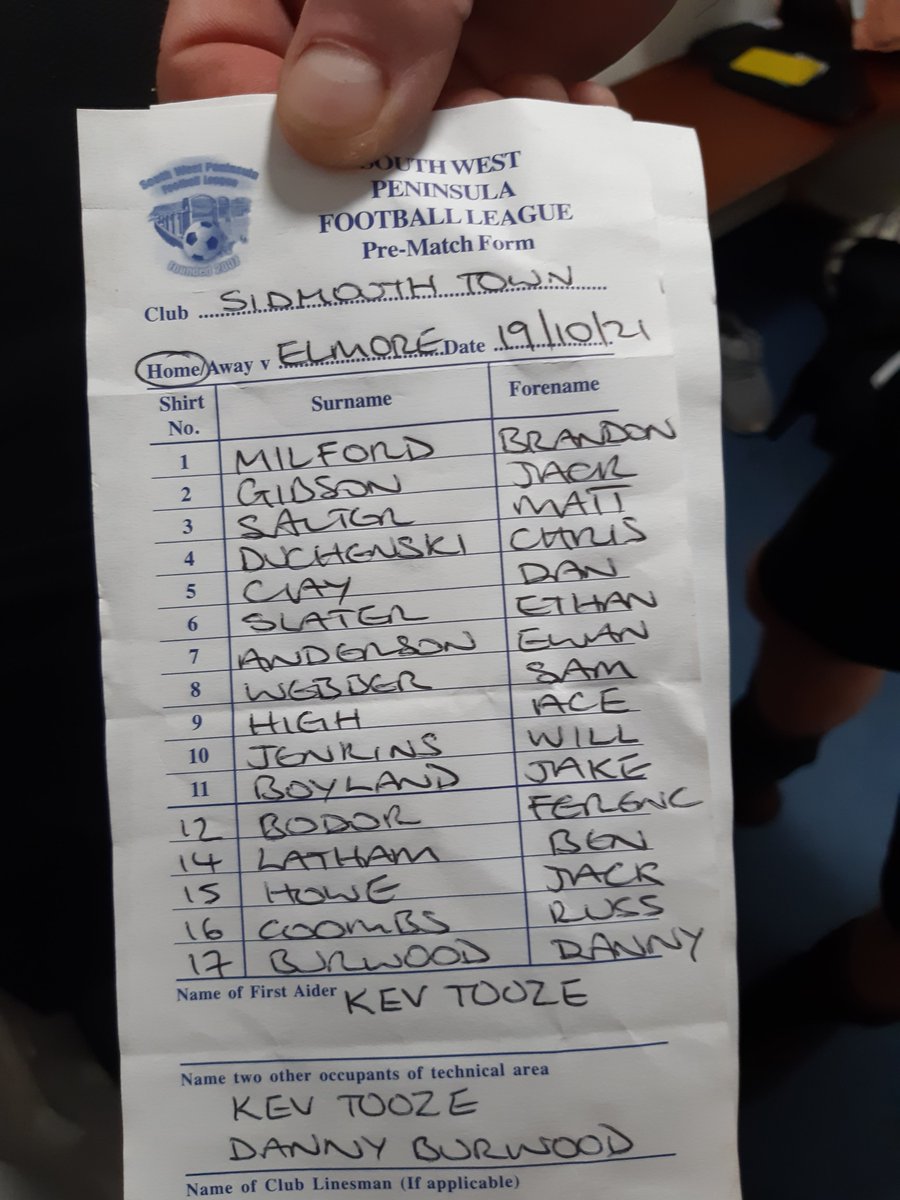 South West Peninsula
Football League
founded 2007
SOUTH WEST
PENINSULA
FOOTBALL LEAGUE
Pre-Match Form
Club SIDMOUTH TOWN
Home/Away v ELMORE Date 19/10/21
Shirt No. Surname Forename
1 MILFORD BRANDON
2 GIBSON JACK
3 SALTER MATT
4 DUCHENSKI CHRIS
5 CLAY DAN
6 SLATER ETHAN
7 ANDERSON EWAN
8 WEBBER SAM
9 HIGH ACE
10 JENKINS WILL
11 BOYLAND JAKE
12 BODOR FERENC
14 LATHAM BEN
15 HOWE JACK
16 COOMBS RUSS
17 BURWOOD DANNY
Name of First Aider KEV TOOZE
Name two other occupants of technical area
KEV TOOZE
DANNY BURWOOD
Name of Club Linesman (If applicable)